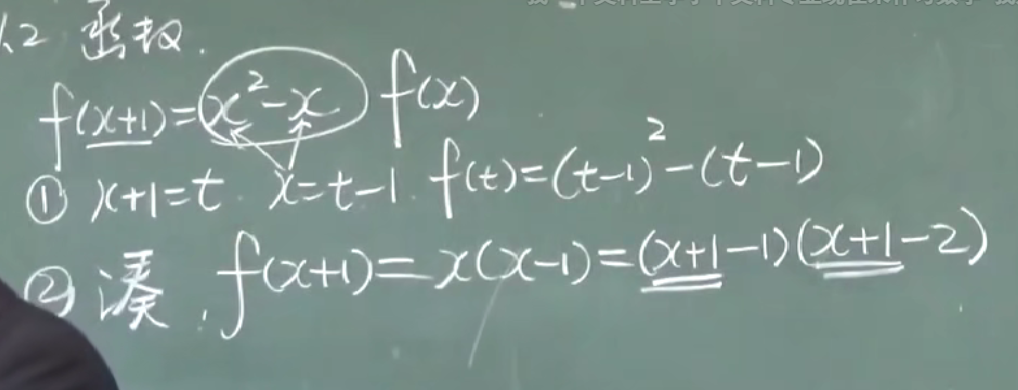 1.2 函数.
f(x+1)=x²-x f(x)
① x+1=t. x=t-1. f(t)=(t-1)²-(t-1)
② 凑. f(x+1)=x(x-1)=(x+1-1)(x+1-2)